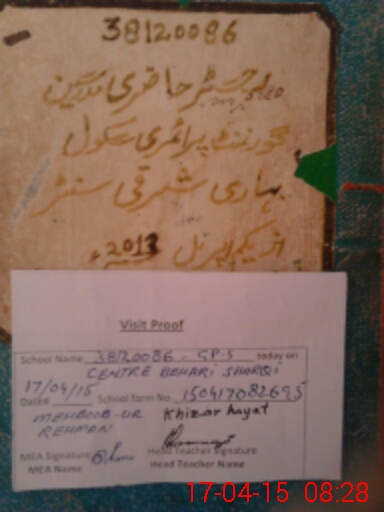 38120086
رجسٹر حاضری مدرسین
گورنمنٹ پرائمری سکول
بہاری شرقی سنٹر
از یکم اپریل 2013ء
Visit Proof
School Name 38120086 - GPS today on
CENTRE BEHARI SHARQI
17/04/15
Dated School form No. 150417082695
MEHBOOB-UR REHMAN Khizar hayat
MEA Signature Head Teacher Signature
MEA Name Head Teacher Name
17-04-15 08:28